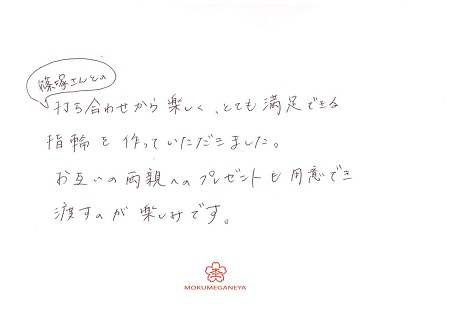 篠塚さんとの
打ち合わせから楽しく、とても満足できる
指輪を作っていただきました。
お互いの両親へのプレゼントも用意でき
渡すのが楽しみです。
MOKUMEGANEYA